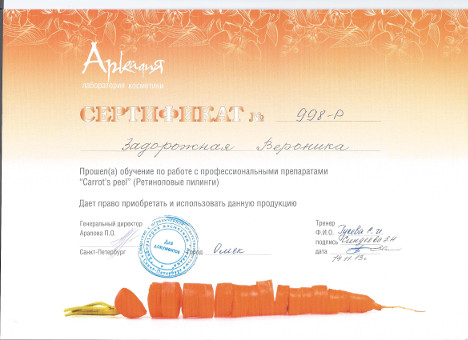 Аркадия
лаборатория косметики
СЕРТИФИКАТ № 998-Р
Задорожная Вероника
Прошел(а) обучение по работе с профессиональными препаратами
"Carrot's peel" (Ретиноловые пилинги)
Дает право приобретать и использовать данную продукцию
Генеральный директор
Арапова П.О.
Санкт-Петербург
Для
Город Омск
Тренер
Ф.И.О.
подпись
дата 14.11.13.